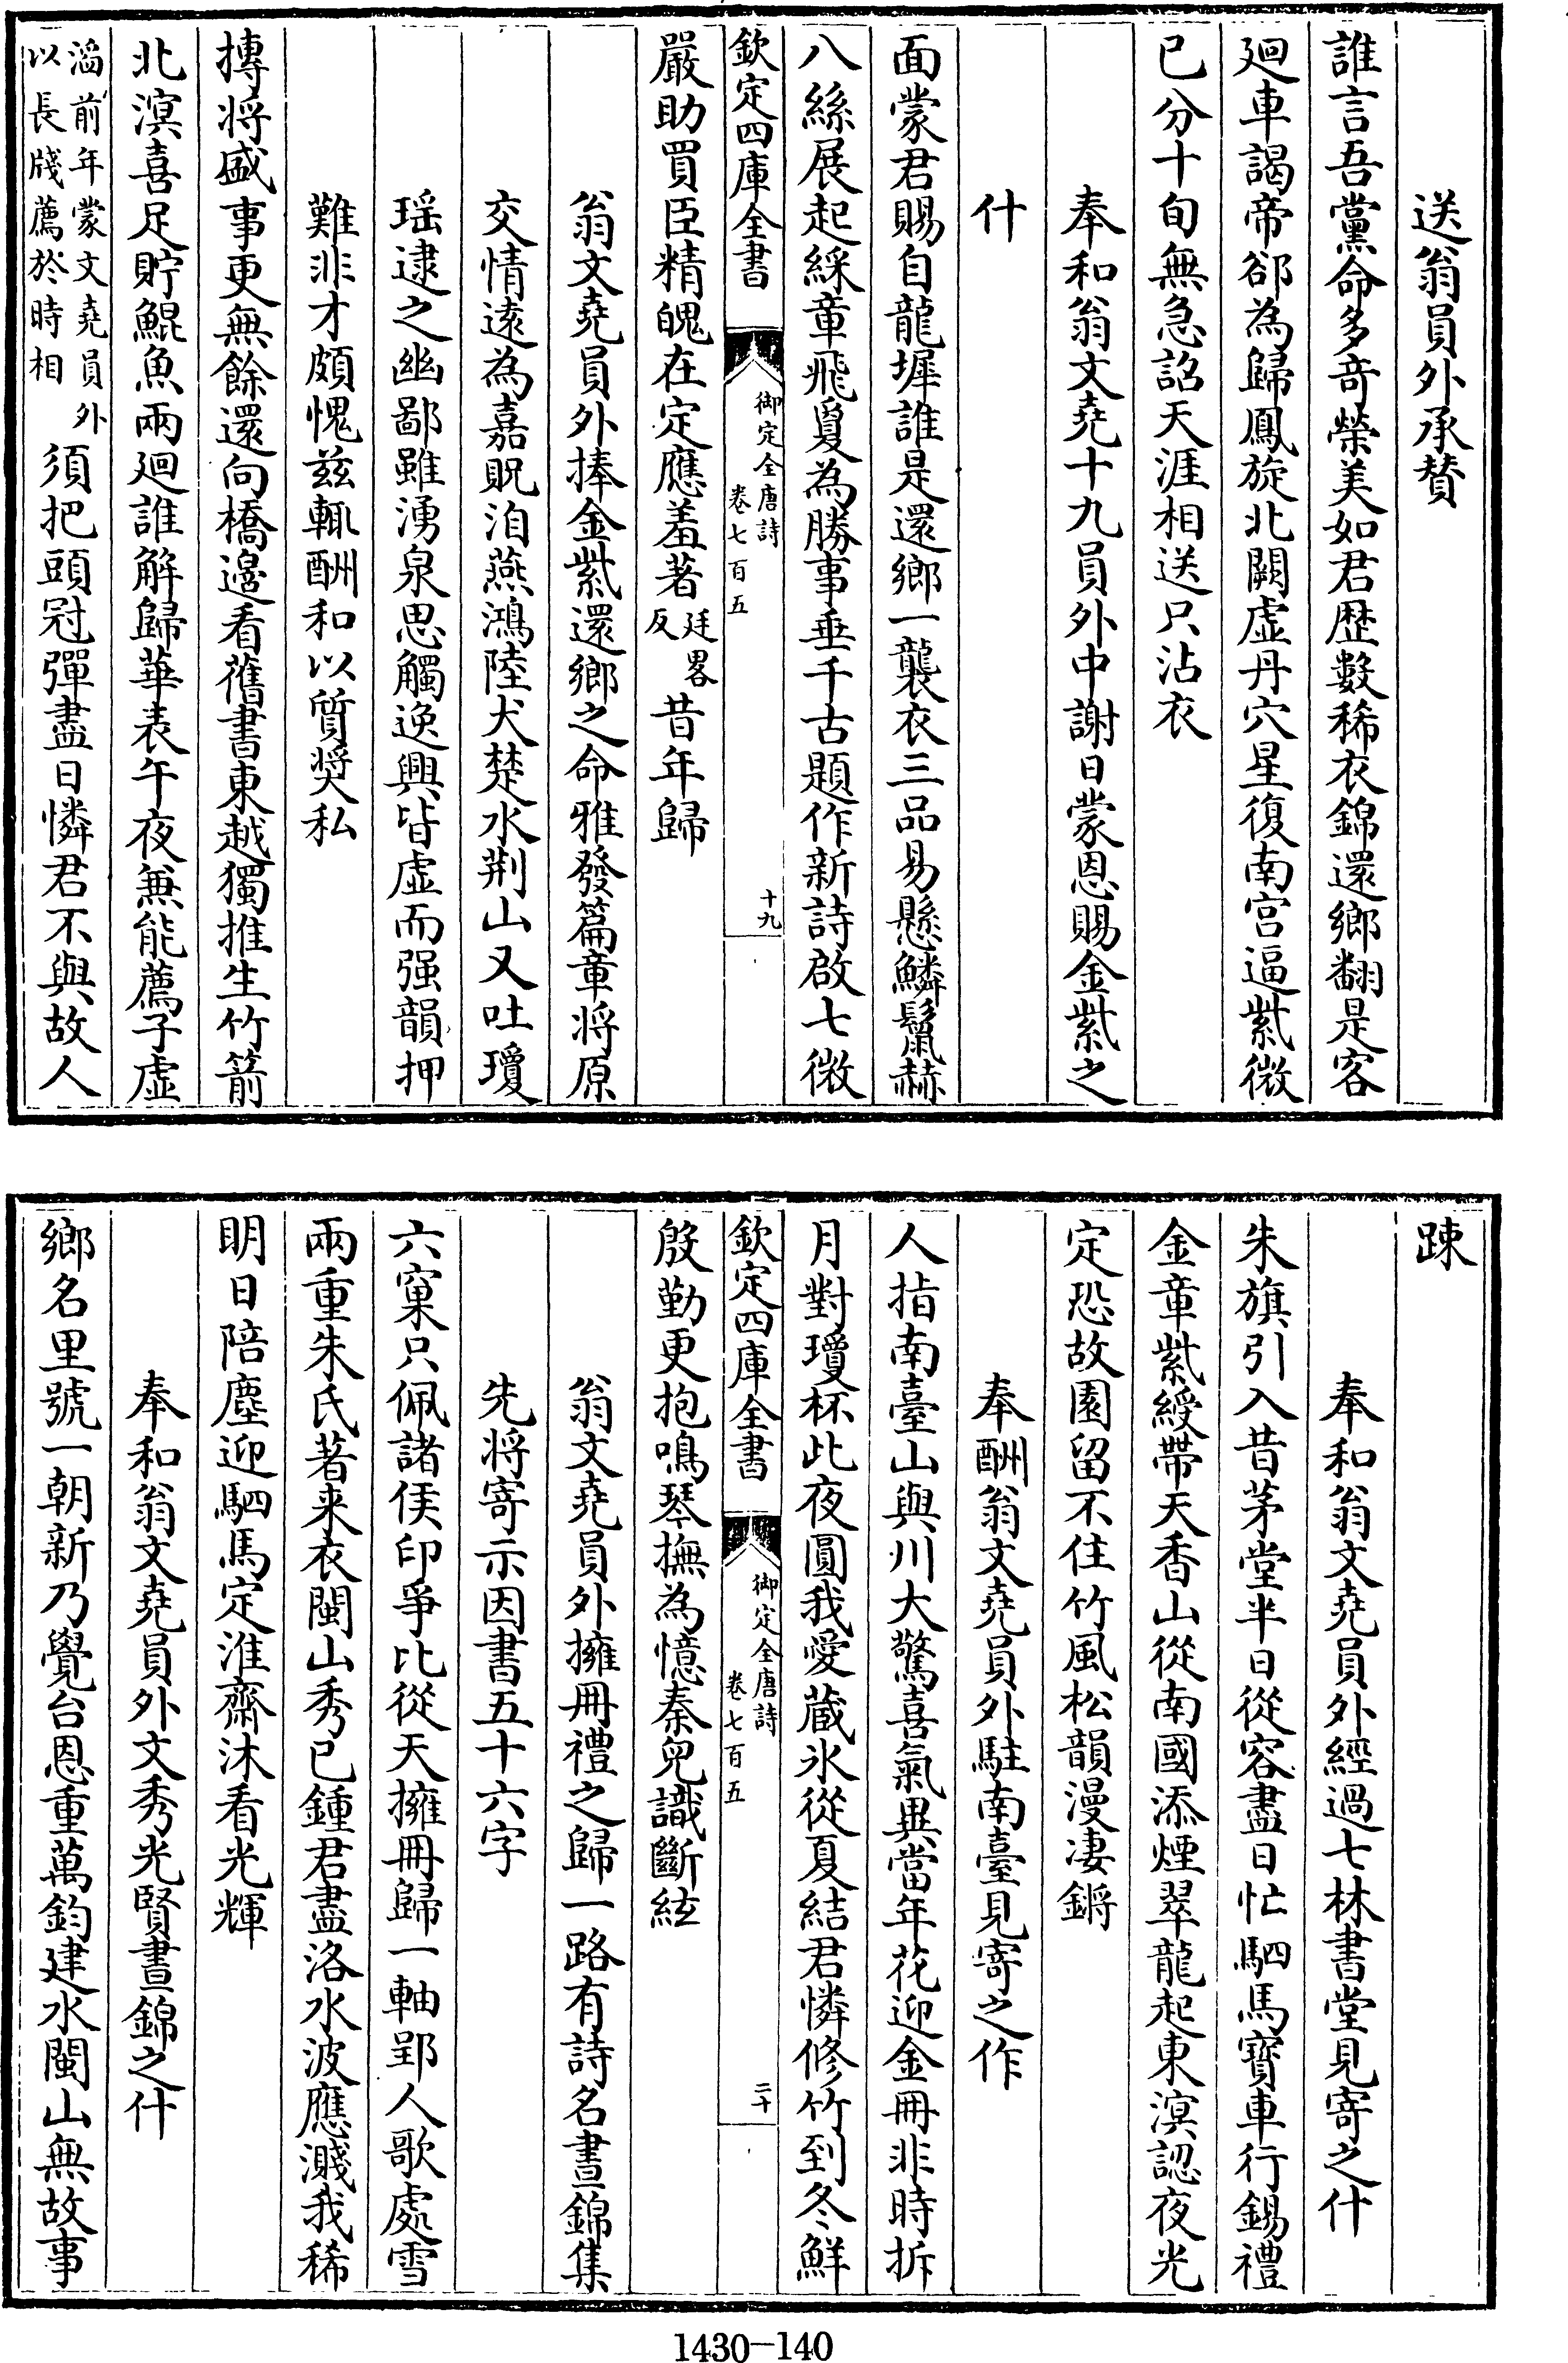 送翁員外承賛
誰言吾黨命多奇榮美如君歴數稀衣錦還鄉翻是客
廻車謁帝郤為歸鳳旋北闕虛丹穴星復南宫逼紫微
已分十旬無急詔天涯相送只沾衣
奉和翁文堯十九員外中謝日蒙恩賜金紫之
什
面蒙君賜自龍墀誰是還鄉一襲衣三品易懸鱗鬛赫
八絲展起綵章飛夐為勝事垂千古題作新詩啟七微
欽定四庫全書
御定全唐詩
卷七百五
十九
嚴助買臣精魄在定應羞著廷畧
反昔年歸
翁文堯員外捧金紫還鄉之命雅發篇章将原
交情逺為嘉貺洎燕鴻陸犬楚水荆山又吐瓊
瑶逮之幽鄙雖湧泉思觸逸興皆虛而强韻押
難非才頗愧兹輒酬和以質奬私
摶将盛事更無餘還向橋邉看舊書東越獨推生竹箭
北溟喜足貯鯤魚兩廻誰解歸華表午夜兼能薦子虛
滔前年蒙文堯員外
以長牋薦於時相須把頭冠彈盡日憐君不與故人
踈
奉和翁文堯員外經過七林書堂見寄之什
朱旗引入昔茅堂半日從容盡日忙駟馬寳車行錫禮
金章紫綬帶天香山從南國添煙翠龍起東溟認夜光
定恐故園留不住竹風松韻漫凄鏘
奉酬翁文堯員外駐南臺見寄之作
人指南臺山與川大驚喜氣異當年花迎金冊非時拆
月對瓊杯此夜圓我愛蔵氷從夏結君憐修竹到冬鮮
欽定四庫全書
御定全唐詩
卷七百五
二十
殷勤更抱鳴琴撫為憶秦兒識斷絃
翁文堯員外擁冊禮之歸一路有詩名晝錦集
先将寄示因書五十六字
六窠只佩諸侯印爭比從天擁冊歸一軸郢人歌處雪
兩重朱氏著来衣閩山秀已鍾君盡洛水波應濺我稀
明日陪塵迎駟馬定淮齋沐看光輝
奉和翁文堯員外文秀光賢晝錦之什
鄉名里號一朝新乃覺台恩重萬鈞建水閩山無故事
1430-140